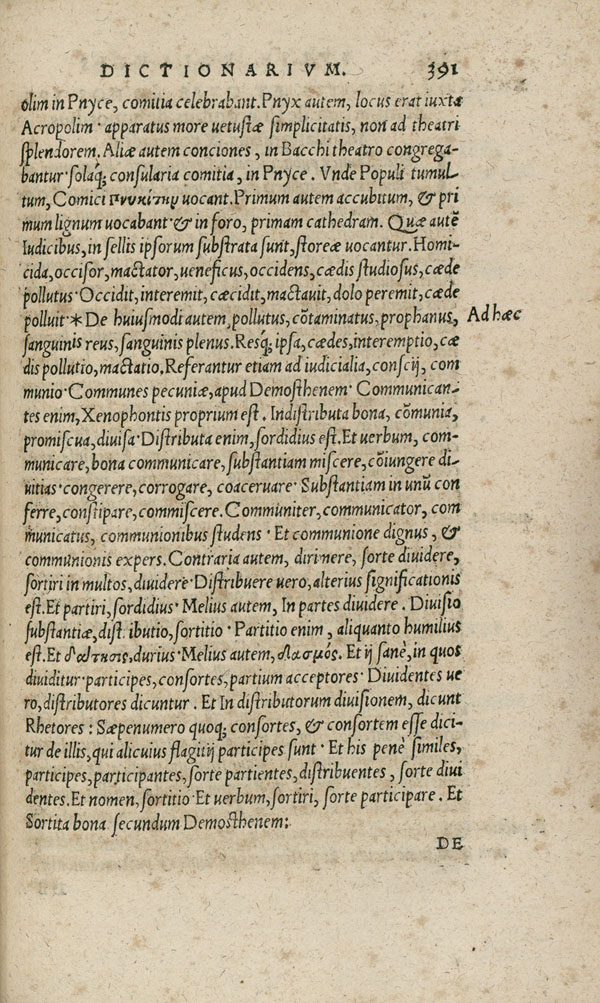 DICTIONARIVM. 391
olim in Pnyce, comitia celebrabant. Pnyx autem, locus erat iuxta
Acropolim · apparatus more uetustæ simplicitatis, non ad theatri
splendorem. Aliæ autem conciones, in Bacchi theatro congrega-
bantur · solaq́; consularia comitia, in Pnyce. Vnde Populi tumul
tum, Comici πνυκίτην uocant. Primum autem accubitum, & pri
mum lignum uocabant · & in foro, primam cathedram. Quæ autē
Iudicibus, in sellis ipsorum substrata sunt, storeæ uocantur. Homi-
cida, occisor, mactator, ueneficus, occidens, cædis studiosus, cæde
pollutus · Occidit, interemit, cæcidit, mactauit, dolo peremit, cæde
polluit · * De huiusmodi autem, pollutus, cōtaminatus, prophanus, Ad hæc
sanguinis reus, sanguinis plenus. Resq́; ipsa, cædes, interemptio, cæ
dis pollutio, mactatio. Referantur etiam ad iudicialia, conscij, com
munio · Communes pecuniæ, apud Demosthenem · Communican-
tes enim, Xenophontis proprium est. Indistributa bona, cōmunia,
promiscua, diuisa · Distributa enim, sordidius est. Et uerbum, com-
municare, bona communicare, substantiam miscere, cōiungere di-
uitias · congerere, corrogare, coaceruare · Substantiam in unū con
ferre, constipare, commiscere. Communiter, communicator, com
municatus, communionibus studens · Et communione dignus, &
communionis expers. Contraria autem, dirimere, sorte diuidere,
sortiri in multos, diuidere · Distribuere uero, alterius significationis
est. Et partiri, sordidius · Melius autem, In partes diuidere. Diuisio
substantiæ, dist ibutio, sortitio · Partitio enim, aliquanto humilius
est. Et δάτησις, durius · Melius autem, δασμός. Et ij sanè, in quos
diuiditur · participes, consortes, partium acceptores · Diuidentes ue
ro, distributores dicuntur. Et In distributorum diuisionem, dicunt
Rhetores : Sæpenumero quoq; consortes, & consortem esse dici-
tur de illis, qui alicuius flagitij participes sunt · Et his penè similes,
participes, participantes, sorte partientes, distribuentes, sorte diui
dentes. Et nomen, sortitio · Et uerbum, sortiri, sorte participare. Et
Sortita bona secundum Demosthenem:
DE